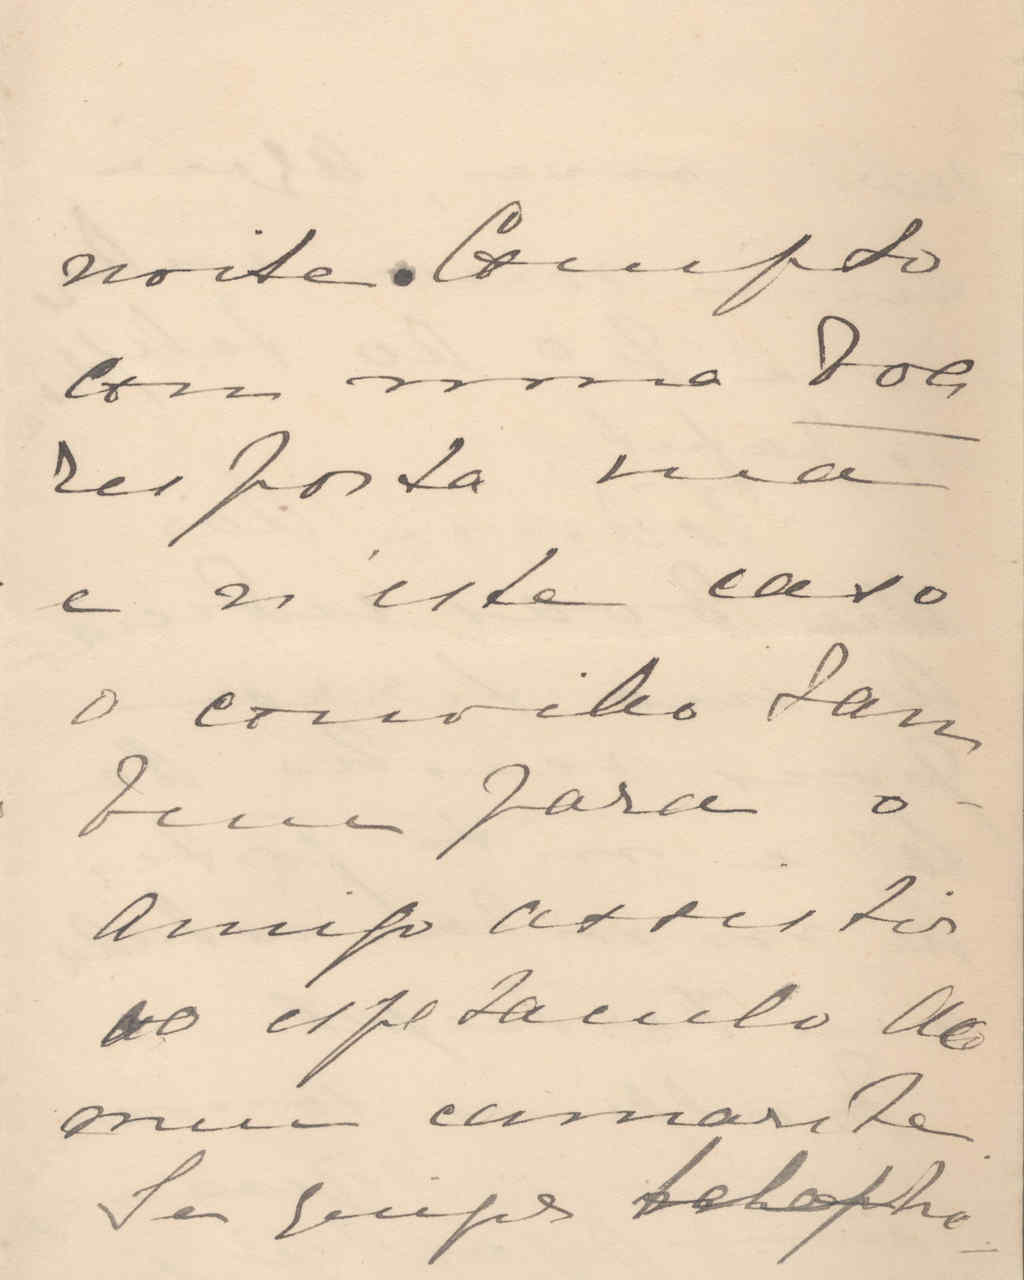 noite. Compto
com numa boa
resposta sua
e n'este caso
o convido tam
bem para o
amigo assistir
ao espetaculo do
meu camarote
Se quizer telepho-